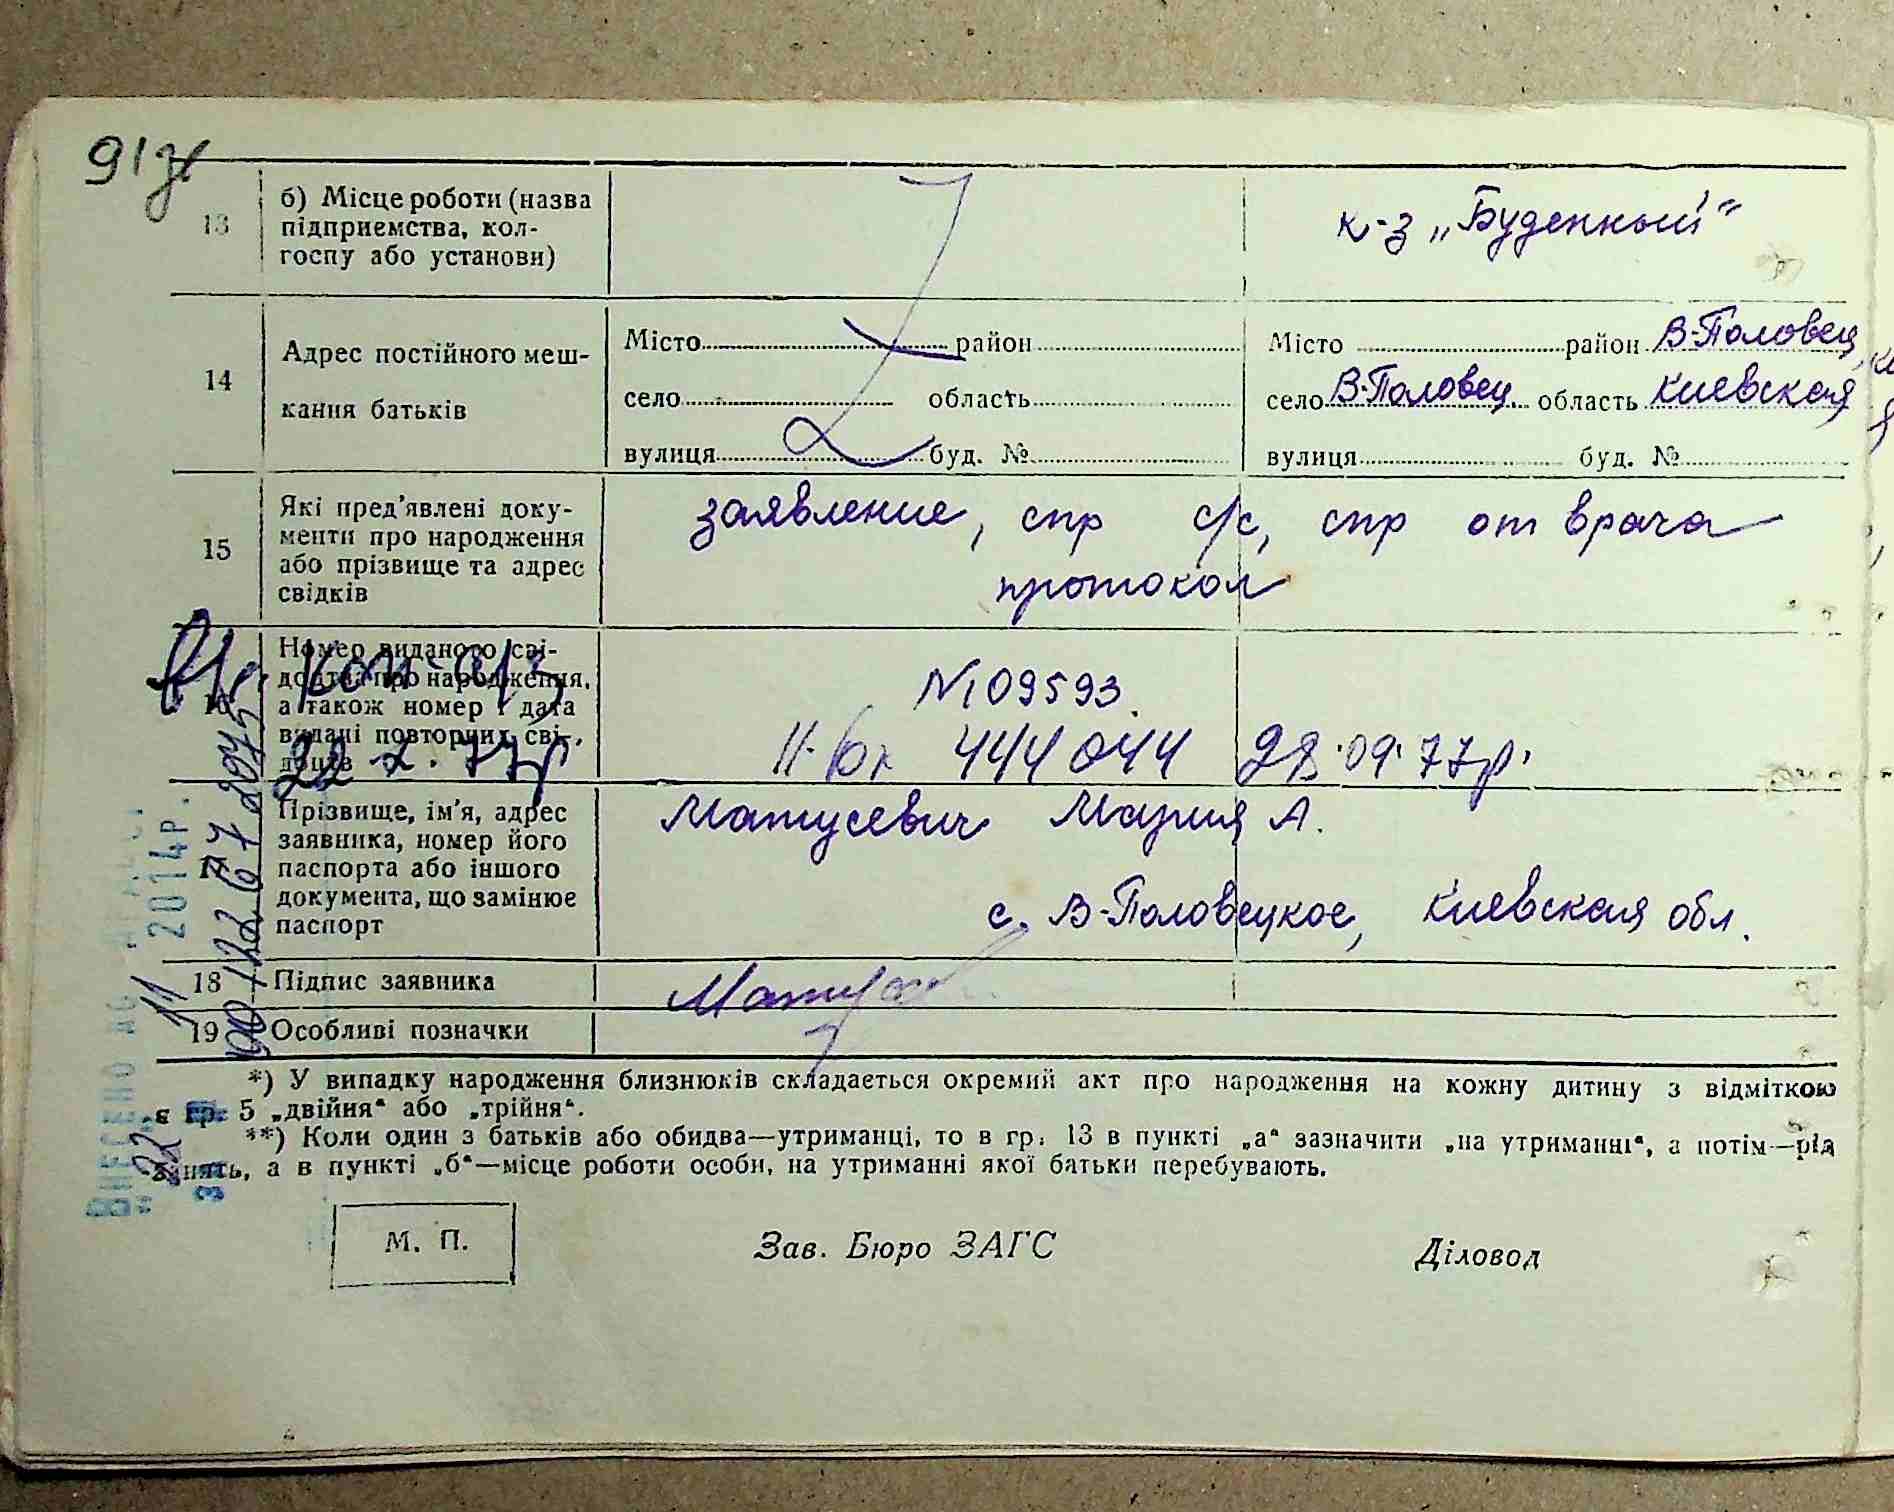 91
13
б) Місце роботи (назва
підприємства, кол-
госпу або установи)
к-з „Буденный“
14
Адрес постійного меш-
кання батьків
Місто район
село область
вулиця буд. №
Місто район В-Половец
село В-Половец. область Киевская
вулиця буд. №
15
Які пред'явлені доку-
менти про народження
або прізвище та адрес
свідків
заявление, спр с/с, спр от врача
протокол
16
Номер виданого сві-
доцтва про народження,
а також номер і дата
видані повторних сві-
доцтв
22 X 77р
№ 09593.
444044 28.09.77р.
17
Прізвище, ім'я, адрес
заявника, номер його
паспорта або іншого
документа, що замінює
паспорт
Матусевич Мария А.
с. В-Половецкое, Киевская обл.
18
Підпис заявника
19
Особливі позначки
*) У випадку народження близнюків складається окремий акт про народження на кожну дитину з відміткою
в гр. 5 „двійня“ або „трійня“.
**) Коли один з батьків або обидва—утриманці, то в гр. 13 в пункті „а“ зазначити „на утриманні“, а потім—рід
занять, а в пункті „б“—місце роботи особи, на утриманні якої батьки перебувають.
ВНЕСЕНО
22 11 2014р.
М. П.
Зав. Бюро ЗАГС
Діловод